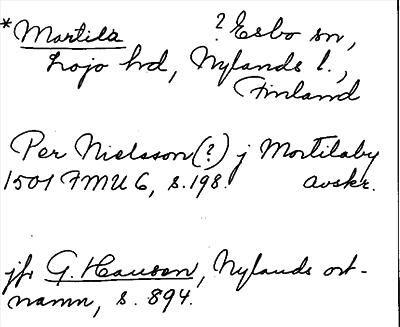 *Mortila ? Esbo sn,
Lojo hd, Nylands l.,
Finland
Per Nielsson (?) j Mortilaby
1501 FMU 6, s. 198. avskr.
jfr G. Hausen, Nylands ort-
namn, s. 894.